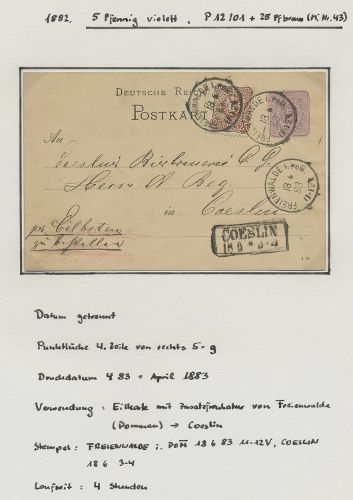 1882. 5 Pfennig violett, P 12 / 01 + 25 Pf braun (Mi. Nr. 43)
DEUTSCHE REI
POSTKAR
FREIENWALDE i. POM.
18 6 83
FREIENWALDE i. POM.
18 6 83
An
FREIENWALDE i. POM.
18 6 83
11-12V
Coesliner Bierbrauerei A. G.
Herrn A Beg
in Coeslin
per Eilboten
zu bestellen
COESLIN
18 6 3-4
Datum getrennt
Punktlücke 4. Zeile von rechts 5-9
Druckdatum 4 83 = April 1883
Verwendung : Eilkarte mit Zusatzfrankatur von Freienwalde
(Pommern) → Coeslin
Stempel: FREIENWALDE i. POM 18 6 83 11-12V, COESLIN
18 6 3-4
Laufzeit : 4 Stunden